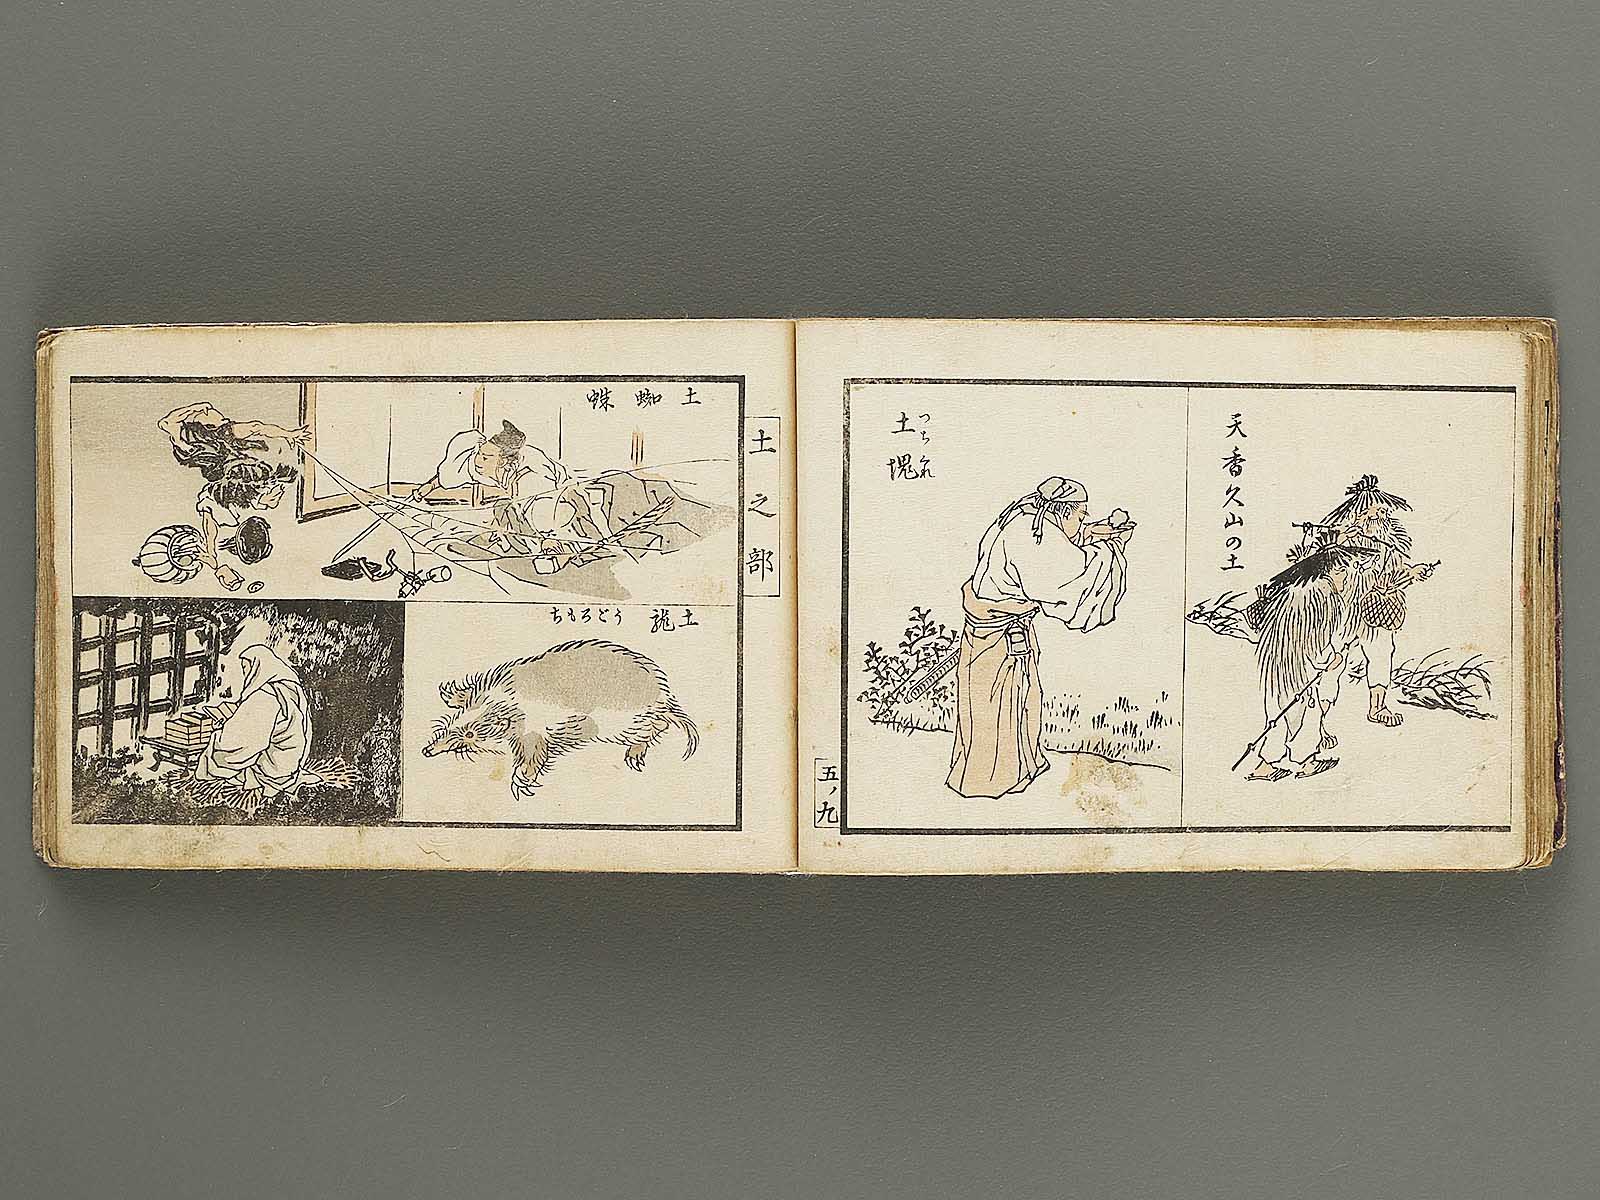 天香久山の土
土塊
つちくれ
五ノ九
土之部
土蜘蛛
土龍
うごろもち